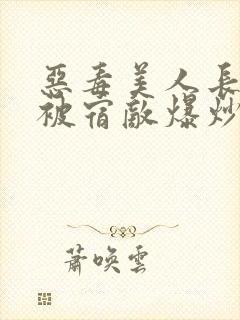 惡毒美人長
被宿敵爆炒
蕭喚雲